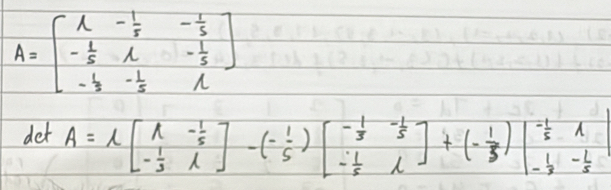 A = [ λ -1/5 -1/5
-1/5 λ -1/5
-1/5 -1/5 λ ]
det A = λ [ λ -1/5 ; -1/5 λ ] - (-1/5) [ -1/5 -1/5 ; -1/5 λ ] + (-1/5) | -1/5 λ ; -1/5 -1/5 |